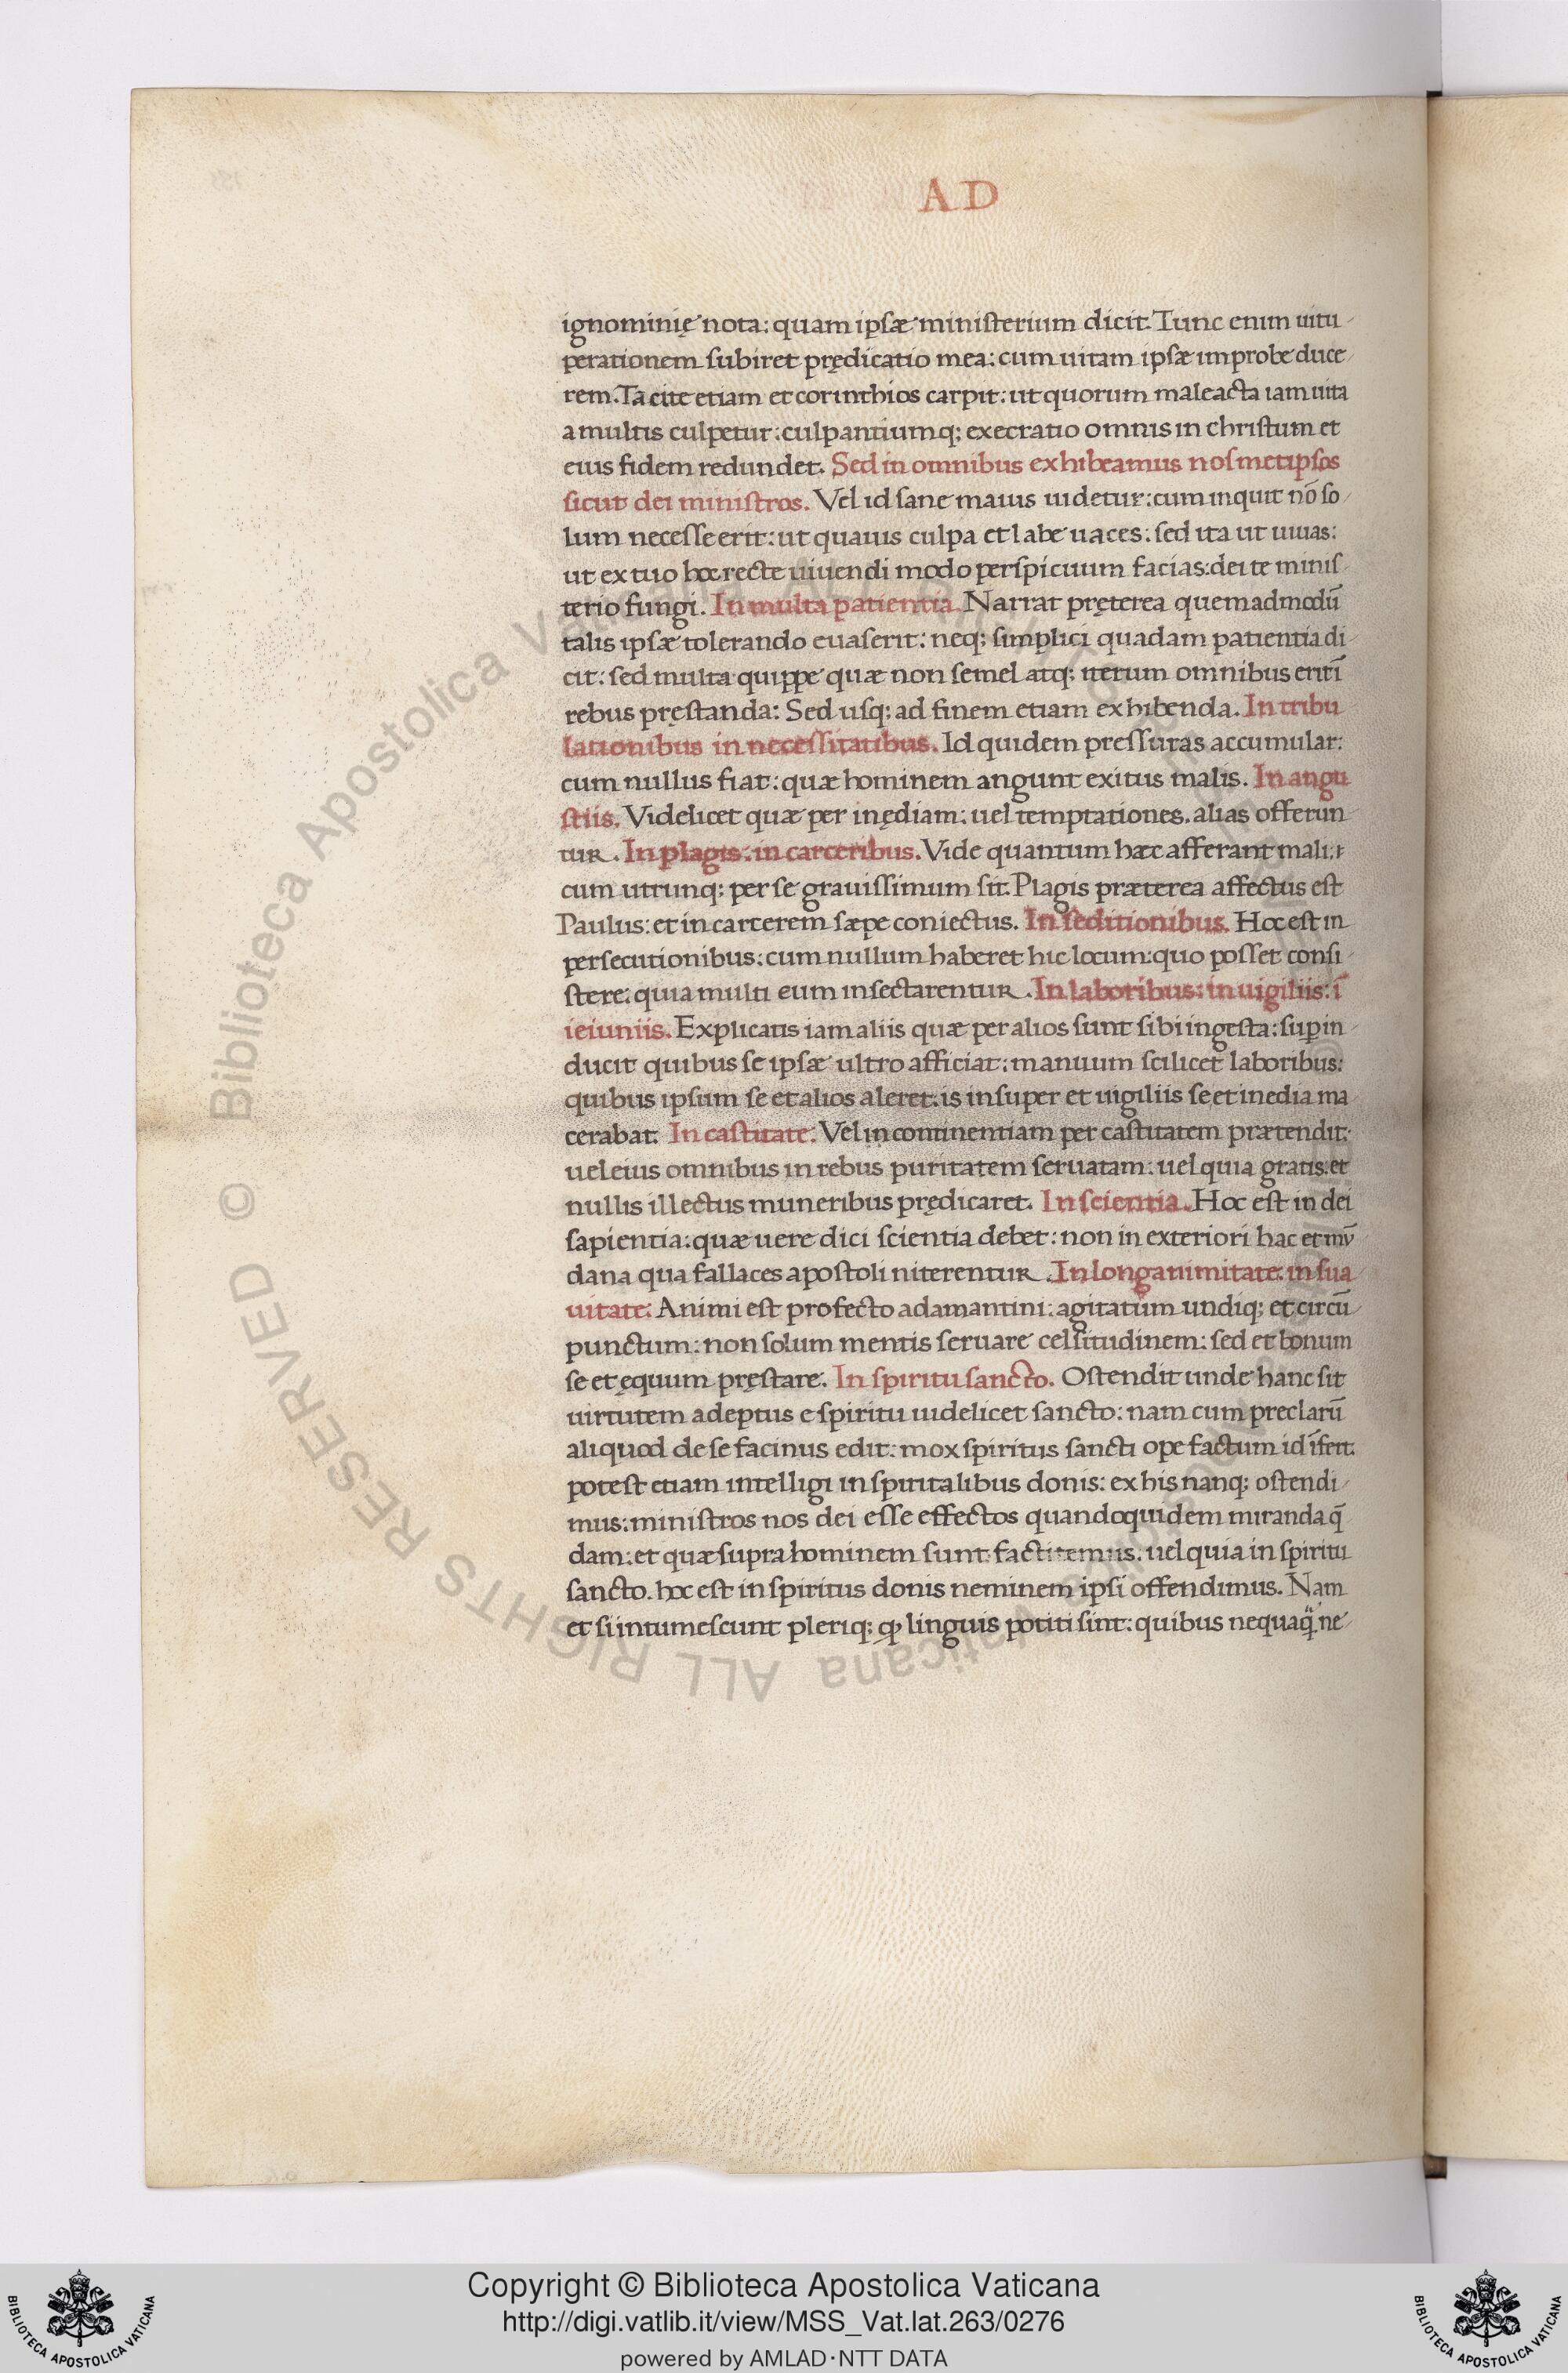 AD
ignominię nota: quam ipsæ ministerium dicit. Tunc enim uitu
perationem subiret prędicatio mea: cum uitam ipsæ improbe duce
rem. Tacite etiam et corinthios carpit: ut quorum maleacta iam uita
a multis culpetur: culpantiumq; execratio omnis in christum et
eius fidem redundet. Sed in omnibus exhibeamus nosmetipsos
sicut dei ministros. Vel id sane maius uidetur: cum inquit nō so
lum necesse erit: ut quauis culpa et labe uaces: sed ita ut uiuas:
ut ex tuo hoc recte uiuendi modo perspicuum facias: dei te minis
terio fungi. In multa patientia. Narrat pręterea quemadmodū
talis ipsæ tolerando euaserit: neq; simplici quadam patientia di
cit: sed multa quippe quæ non semel atq; iterum omnibus enī
rebus pręstanda: Sed usq; ad finem etiam exhibenda. In tribu
lationibus in necessitatibus. Id quidem pressuras accumulat:
cum nullus fiat: quæ hominem angunt exitus malis. In angu
stiis. Videlicet quæ per inędiam: uel temptationes. alias offerun
tur. In plagis: in carceribus. Vide quantum hæc afferant mali:
cum utrunq; per se grauissimum sit. Plagis præterea affectus est
Paulus: et in carcerem sæpe coniectus. In seditionibus. Hoc est in
persecutionibus: cum nullum haberet hic locum: quo posset consi
stere: quia multi eum insectarentur. In laboribus: in uigiliis: ī
ieiuniis. Explicatis iam aliis quæ per alios sunt sibi ingesta: supin
ducit quibus se ipsæ ultro afficiat: manuum scilicet laboribus:
quibus ipsum se et alios aleret: is insuper et uigiliis se et inedia ma
cerabat. In castitate. Vel in continentiam per castitatem prætendit:
uel eius omnibus in rebus puritatem seruatam: uel quia gratis: et
nullis illectus muneribus prędicaret. In scientia. Hoc est in dei
sapientia: quæ uere dici scientia debet: non in exteriori hac et mū
dana qua fallaces apostoli niterentur. In longanimitate: in sua
uitate: Animi est profecto adamantini: agitatum undiq; et circū
punctum: non solum mentis seruare celsitudinem: sed et bonum
se et ęquum pręstare. In spiritu sancto. Ostendit unde hanc sit
uirtutem adeptus e spiritu uidelicet sancto: nam cum preclarū
aliquod de se facinus edit: mox spiritus sancti ope factum id īfert.
potest etiam intelligi in spiritalibus donis: ex his nanq; ostendi
mus: ministros nos dei esse effectos quandoquidem miranda q̄
dam: et quæ supra hominem sunt factitemus. uel quia in spiritu
sancto. hoc est in spiritus donis neminem ipsi offendimus. Nam
et si intumescunt pleriq; ꝙ linguis potiti sint: quibus nequaq̄ ne
Copyright © Biblioteca Apostolica Vaticana
http://digi.vatlib.it/view/MSS_Vat.lat.263/0276
powered by AMLAD·NTT DATA